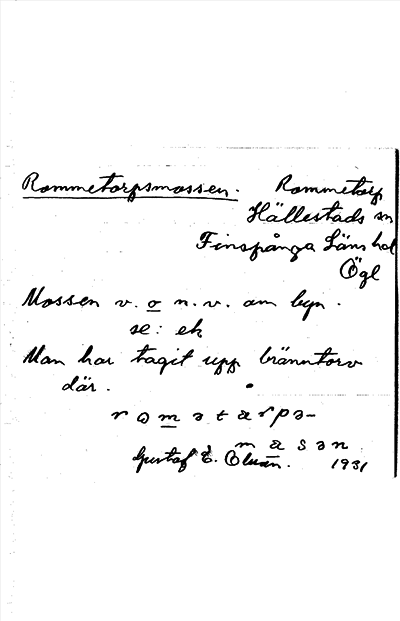 Rommetorpsmossen. Rommetorp
Hällestads sn
Finspånga Läns hd
Ögl
Mossen v. o n. v. om byn.
se: ek
Man har tagit upp bränntorv
där.
Gustaf E. 1931